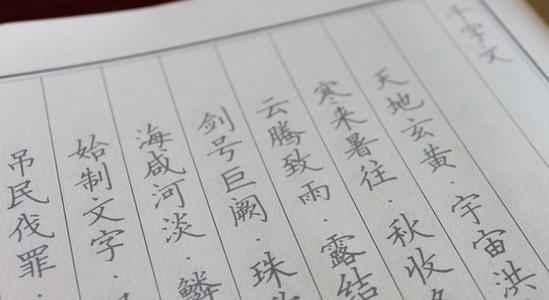 千字文
天地玄黄.宇宙洪
寒来暑往.秋收
云腾致雨.露结
剑号巨阙.珠
海咸河淡.鳞
始制文字.
吊民伐罪